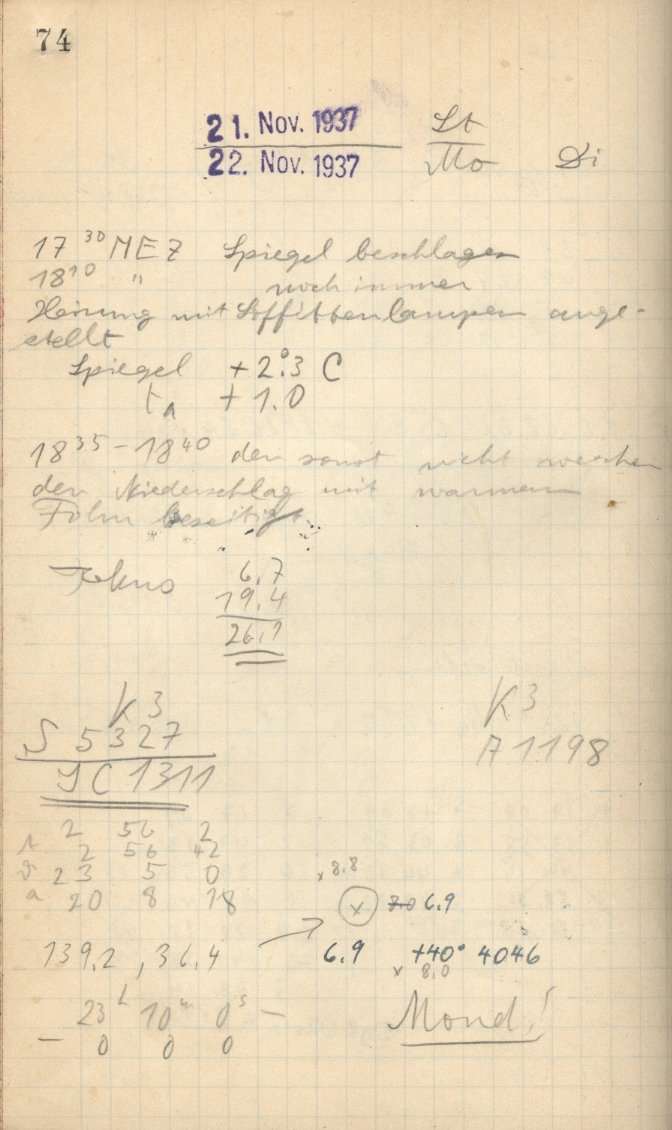 74
21. Nov. 1937 St
22. Nov. 1937 Mo Di
17 30 MEZ Spiegel beschlagen
18 10 " noch immer
Heizung mit Soffittenlampen ange-
stellt
Spiegel +2°.3 C
ta +1.0
18 35 - 18 40 den sonst nicht weichen
den Niederschlag mit warmem
Föhn beseitigt
Fokus 6.7
19.4
26.1
K 3 K 3
S 5327 A 1198
JC 1311
2 56 2
2 56 42
23 5 0
a 20 8 18
x 8.8
x 7.0 6.9
139.2, 36.4 6.9 +40° 4046
x 8.0
23h 10m 0s - Mond!
- 0 0 0